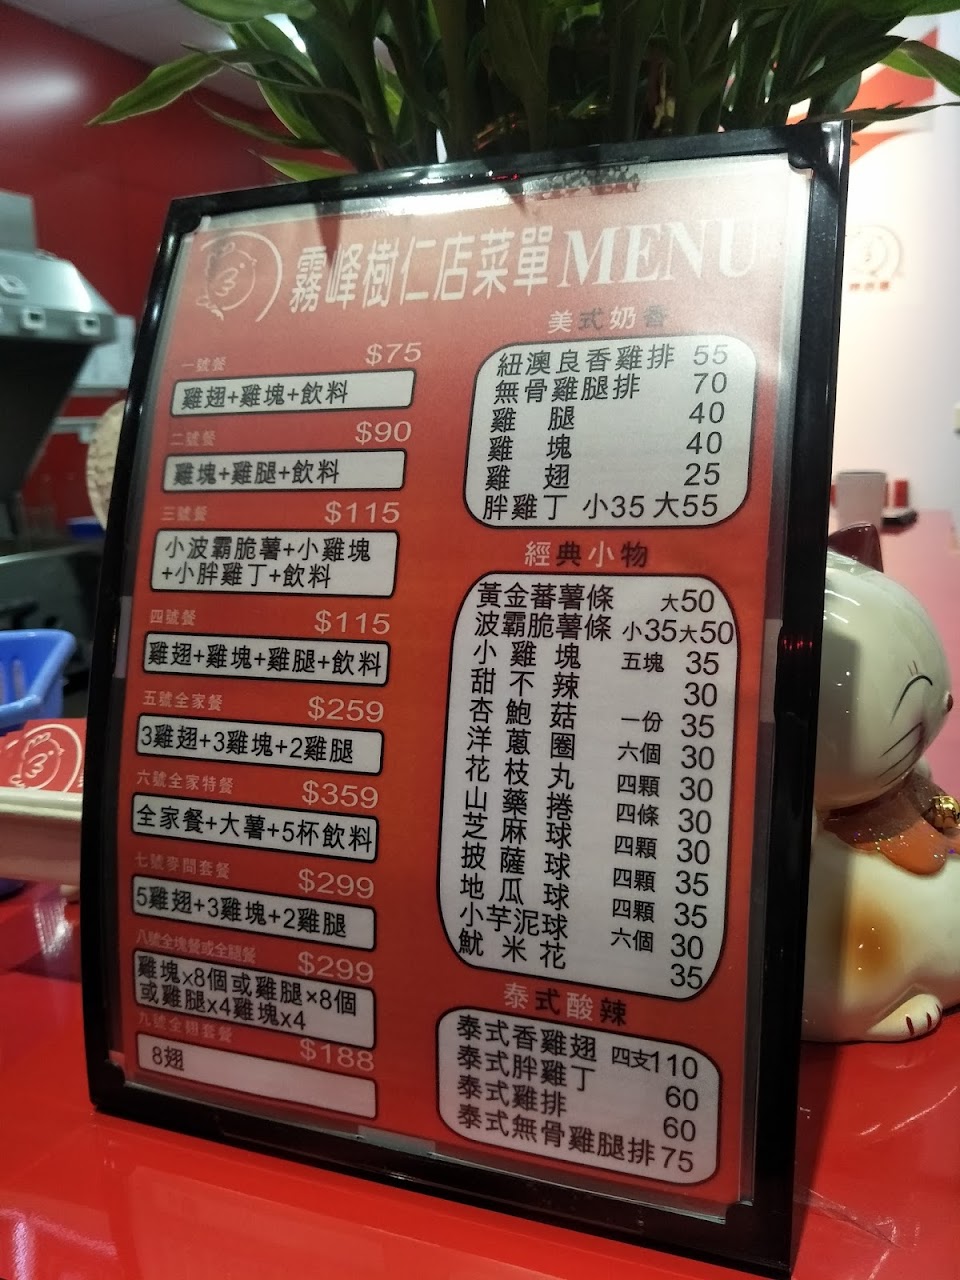 霧峰樹仁店菜單MENU
一號餐 $75
雞翅+雞塊+飲料
二號餐 $90
雞塊+雞腿+飲料
三號餐 $115
小波霸脆薯+小雞塊
+小胖雞丁+飲料
四號餐 $115
雞翅+雞塊+雞腿+飲料
五號全家餐 $259
3雞翅+3雞塊+2雞腿
六號全家特餐 $359
全家餐+大薯+5杯飲料
七號麥問套餐 $299
5雞翅+3雞塊+2雞腿
八號全塊餐或全腿餐 $299
雞塊x8個或雞腿×8個
或雞腿x4雞塊x4
九號全翅套餐 $188
8翅
美式奶香
紐澳良香雞排 55
無骨雞腿排 70
雞腿 40
雞塊 40
雞翅 25
胖雞丁 小35 大55
經典小物
黃金蕃薯條 大50
波霸脆薯條 小35大50
小雞塊 五塊 35
甜不辣 30
杏鮑菇 一份 35
洋蔥圈 六個 30
花枝丸 四顆 30
山藥捲 四條 30
芝麻球 四顆 30
披薩球 四顆 35
地瓜球 四顆 35
小芋泥球 六個 30
魷米花 35
泰式酸辣
泰式香雞翅 四支110
泰式胖雞丁 60
泰式雞排 60
泰式無骨雞腿排 75